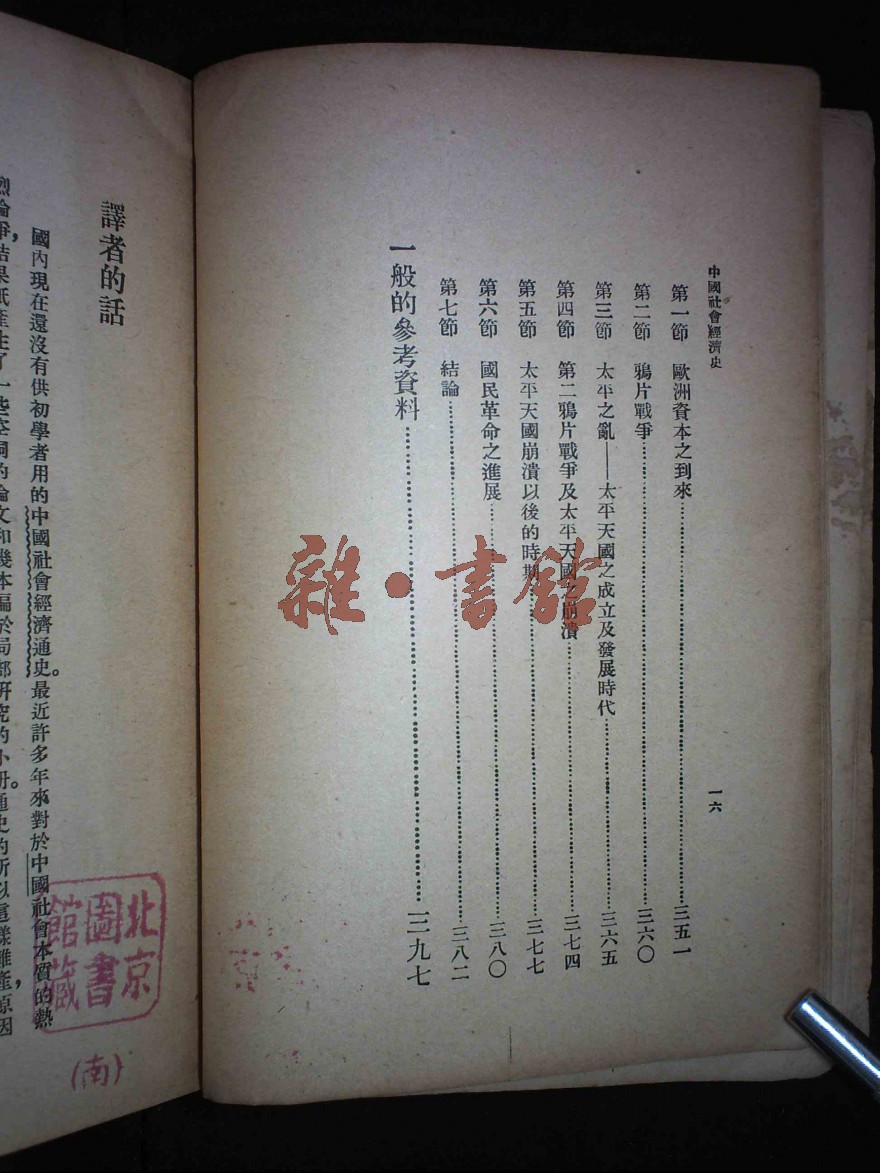 中國社會經濟史
一六
第一節　歐洲資本之到來……三五一
第二節　鴉片戰爭……三六〇
第三節　太平之亂——太平天國之成立及發展時代……三六五
第四節　第二鴉片戰爭及太平天國之崩潰……三七四
第五節　太平天國崩潰以後的時期……三七七
第六節　國民革命之進展……三八〇
第七節　結論……三八二
一般的參考資料……三九七
雜·書館
譯者的話
國內現在還沒有供初學者用的中國社會經濟通史。最近許多年來對於中國社會本質的熱
烈論爭，結果祇產生了一些空洞的論文和幾本偏於局部研究的小冊。通史的所以這樣難產，原因
北京
圖書
館藏
(南)